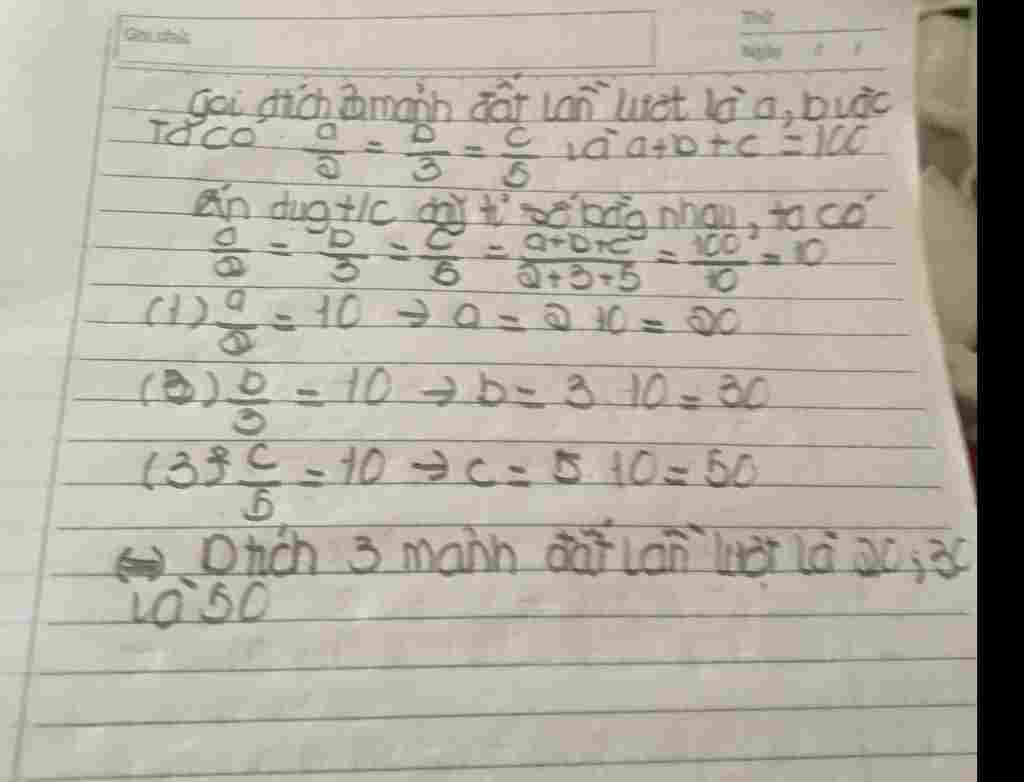 Ghi chú:
Thứ
Ngày / /
Gọi dtích 3 mảnh đất lần lượt là a, b
Ta có a/2 = b/3 = c/5 và a+b+c = 100
dụg t/c dãy tỉ số bằg nhau, ta có
a/2 = b/3 = c/5 = a+b+c/2+3+5 = 100/10 = 10
(1) a/2 = 10 → a = 2 10 = 20
b/3 = 10 → b = 3 10 = 30
(3) c/5 = 10 → c = 5 10 = 50
⇔ Dtích 3 mảnh đất lần lượt là 20; 30
và 50